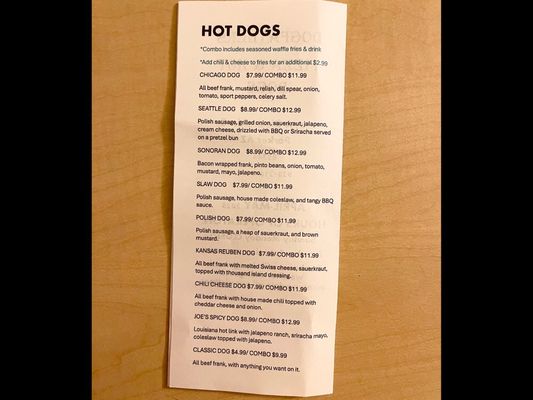 HOT DOGS
*Combo includes seasoned waffle fries & drink
*Add chili & cheese to fries for an additional $2.99
CHICAGO DOG $7.99/ COMBO $11.99
All beef frank, mustard, relish, dill spear, onion,
tomato, sport peppers, celery salt.
SEATTLE DOG $8.99/ COMBO $12.99
Polish sausage, grilled onion, sauerkraut, jalapeno,
cream cheese, drizzled with BBQ or Sriracha served
on a pretzel bun
SONORAN DOG $8.99/ COMBO $12.99
Bacon wrapped frank, pinto beans, onion, tomato,
mustard, mayo, jalapeno.
SLAW DOG $7.99/ COMBO $11.99
Polish sausage, house made coleslaw, and tangy BBQ
sauce.
POLISH DOG $7.99/ COMBO $11.99
Polish sausage, a heap of sauerkraut, and brown
mustard.
KANSAS REUBEN DOG $7.99/ COMBO $11.99
All beef frank with melted Swiss cheese, sauerkraut,
topped with thousand island dressing.
CHILI CHEESE DOG $7.99/ COMBO $11.99
All beef frank with house made chili topped with
cheddar cheese and onion.
JOE'S SPICY DOG $8.99/ COMBO $12.99
Louisiana hot link with jalapeno ranch, sriracha mayo,
coleslaw topped with jalapeno.
CLASSIC DOG $4.99/ COMBO $9.99
All beef frank, with anything you want on it.